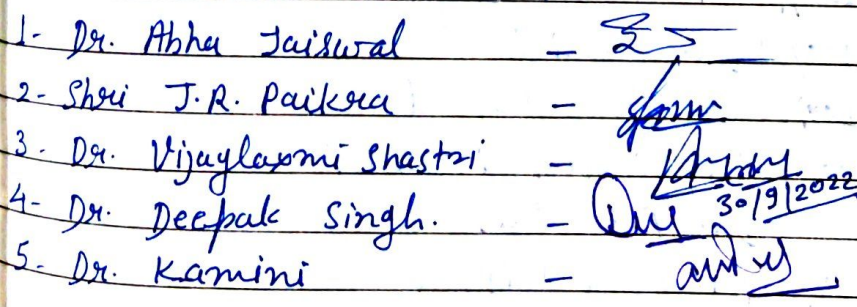 1- Dr. Abha Jaiswal -
2- Shri J.R. Paikra -
3- Dr. Vijaylaxmi Shastri - 
30/9/2022
4- Dr. Deepak Singh. -
5- Dr. Kamini -